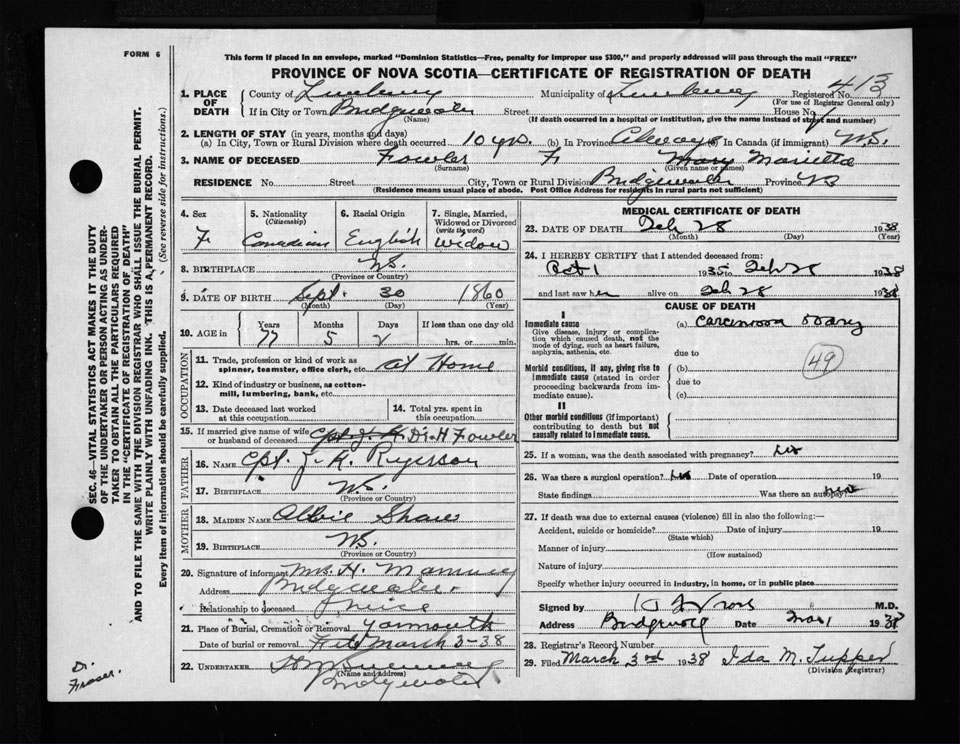 FORM 6
This form if placed in an envelope, marked "Dominion Statistics—Free, penalty for improper use $300," and properly addressed will pass through the mail "FREE"
PROVINCE OF NOVA SCOTIA—CERTIFICATE OF REGISTRATION OF DEATH
1. PLACE OF DEATH County of Lunenburg Municipality of Lunenburg Registered No. 413
(For use of Registrar General only)
If in City or Town Bridgewater Street House No.
(Name) (If death occurred in a hospital or institution, give the name instead of street and number)
2. LENGTH OF STAY (in years, months and days)
(a) In City, Town or Rural Division where death occurred 10 yrs. (b) In Province Always (c) In Canada (if immigrant) N.S.
3. NAME OF DECEASED Fowler F Mary Marietta
(Surname) (Given name or names)
RESIDENCE No. Street City, Town or Rural Division Bridgewater Province NS
(Residence means usual place of abode. Post Office Address for residents in rural parts not sufficient)
SEC. 46—VITAL STATISTICS ACT MAKES IT THE DUTY
OF THE UNDERTAKER OR PERSON ACTING AS UNDER-
TAKER TO OBTAIN ALL THE PARTICULARS REQUIRED
IN THE "CERTIFICATE OF REGISTRATION OF DEATH"
AND TO FILE THE SAME WITH THE DIVISION REGISTRAR WHO SHALL ISSUE THE BURIAL PERMIT.
WRITE PLAINLY WITH UNFADING INK. THIS IS A PERMANENT RECORD.
Every item of information should be carefully supplied. (See reverse side for instructions.)
4. Sex 5. Nationality 6. Racial Origin 7. Single, Married,
(Citizenship) Widowed or Divorced
(write the word)
F Canadian English Widow
8. BIRTHPLACE N.S.
(Province or Country)
9. DATE OF BIRTH Sept. 30 1860
(Month) (Day) (Year)
10. AGE in Years Months Days If less than one day old
77 5 2 hrs. or min.
OCCUPATION
11. Trade, profession or kind of work as
spinner, teamster, office clerk, etc. At Home
12. Kind of industry or business, as cotton-
mill, lumbering, bank, etc.
13. Date deceased last worked 14. Total yrs. spent in
at this occupation this occupation
15. If married give name of wife
or husband of deceased Cpt. J. H. Fowler
FATHER
16. NAME Cpt. J. K. Ryerson
17. BIRTHPLACE N.S.
(Province or Country)
MOTHER
18. MAIDEN NAME Shaw
19. BIRTHPLACE N.S.
(Province or Country)
20. Signature of informant Mrs. H. Manning
Address Bridgewater.
Relationship to deceased niece
21. Place of Burial, Cremation or Removal Yarmouth
Date of burial or removal March 3-38
22. UNDERTAKER
(Name and address)
Bridgewater
Dr. Fraser.
MEDICAL CERTIFICATE OF DEATH
23. DATE OF DEATH Feb 28 1938
(Month) (Day) (Year)
24. I HEREBY CERTIFY that I attended deceased from:
Oct 1 1935 to Feb 28 1938
and last saw her alive on Feb 28 1938
CAUSE OF DEATH
I
Immediate cause (a) Carcinoma Ovary
Give disease, injury or complica-
tion which caused death, not the
mode of dying, such as heart failure,
asphyxia, asthenia, etc. due to
49
Morbid conditions, if any, giving rise to (b)
immediate cause (stated in order due to
proceeding backwards from im-
mediate cause). (c)
II
Other morbid conditions (if important)
contributing to death but not
causally related to immediate cause.
25. If a woman, was the death associated with pregnancy? No
26. Was there a surgical operation? No Date of operation 19
State findings Was there an autopsy? No
27. If death was due to external causes (violence) fill in also the following:—
Accident, suicide or homicide? Date of injury 19
(State which)
Manner of injury
(How sustained)
Nature of injury
Specify whether injury occurred in industry, in home, or in public place
Signed by M.D.
Address Bridgewater Date Mar 1 1938
28. Registrar's Record Number
29. Filed March 3rd 1938 Ida M. Tupper
(Division Registrar)